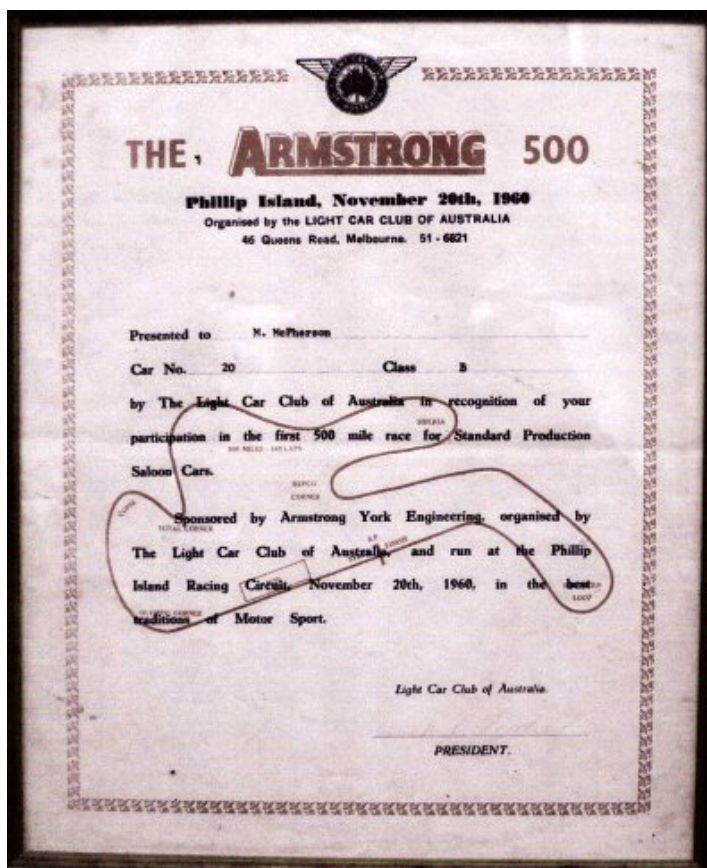 THE ARMSTRONG 500
Phillip Island, November 20th, 1960
Organised by the LIGHT CAR CLUB OF AUSTRALIA
46 Queens Road, Melbourne. 51 - 6821
Presented to M. McPherson
Car No. 20 Class B
by The Light Car Club of Australia in recognition of your
SIBERIA
participation in the first 500 mile race for Standard Production
500 MILES - 167 LAPS
Saloon Cars.
REPCO
CORNER
Sponsored by Armstrong York Engineering, organised by
The Light Car Club of Australia, and run at the Phillip
Island Racing Circuit, November 20th, 1960, in the best
LOOP
traditions of Motor Sport.
Light Car Club of Australia.
PRESIDENT.